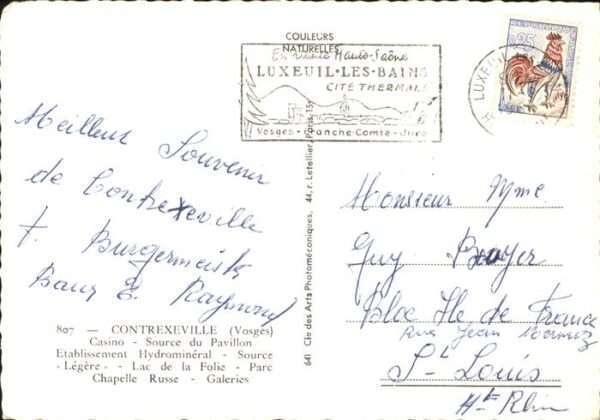 COULEURS
NATURELLES
Haute-Saône
LUXEUIL·LES·BAINS
CITÉ THERMALE
Vosges-Franche-Comté-Jura
25
LUXEUIL
Meilleur Souvenir
de Contrexeville
F. Burgermeister
Baur E. Raymond
807 — CONTREXEVILLE (Vosges)
Casino - Source du Pavillon
Etablissement Hydrominéral - Source
- Légère - - Lac de la Folie - Parc
Chapelle Russe - Galeries
641 Cie des Arts Photomécaniques, 44, r. Letellier, Paris, 15e
Monsieur Mme
Guy Boyer
Bloc Ile de France
Rue Jean Mermoz
St Louis
Ht Rhin